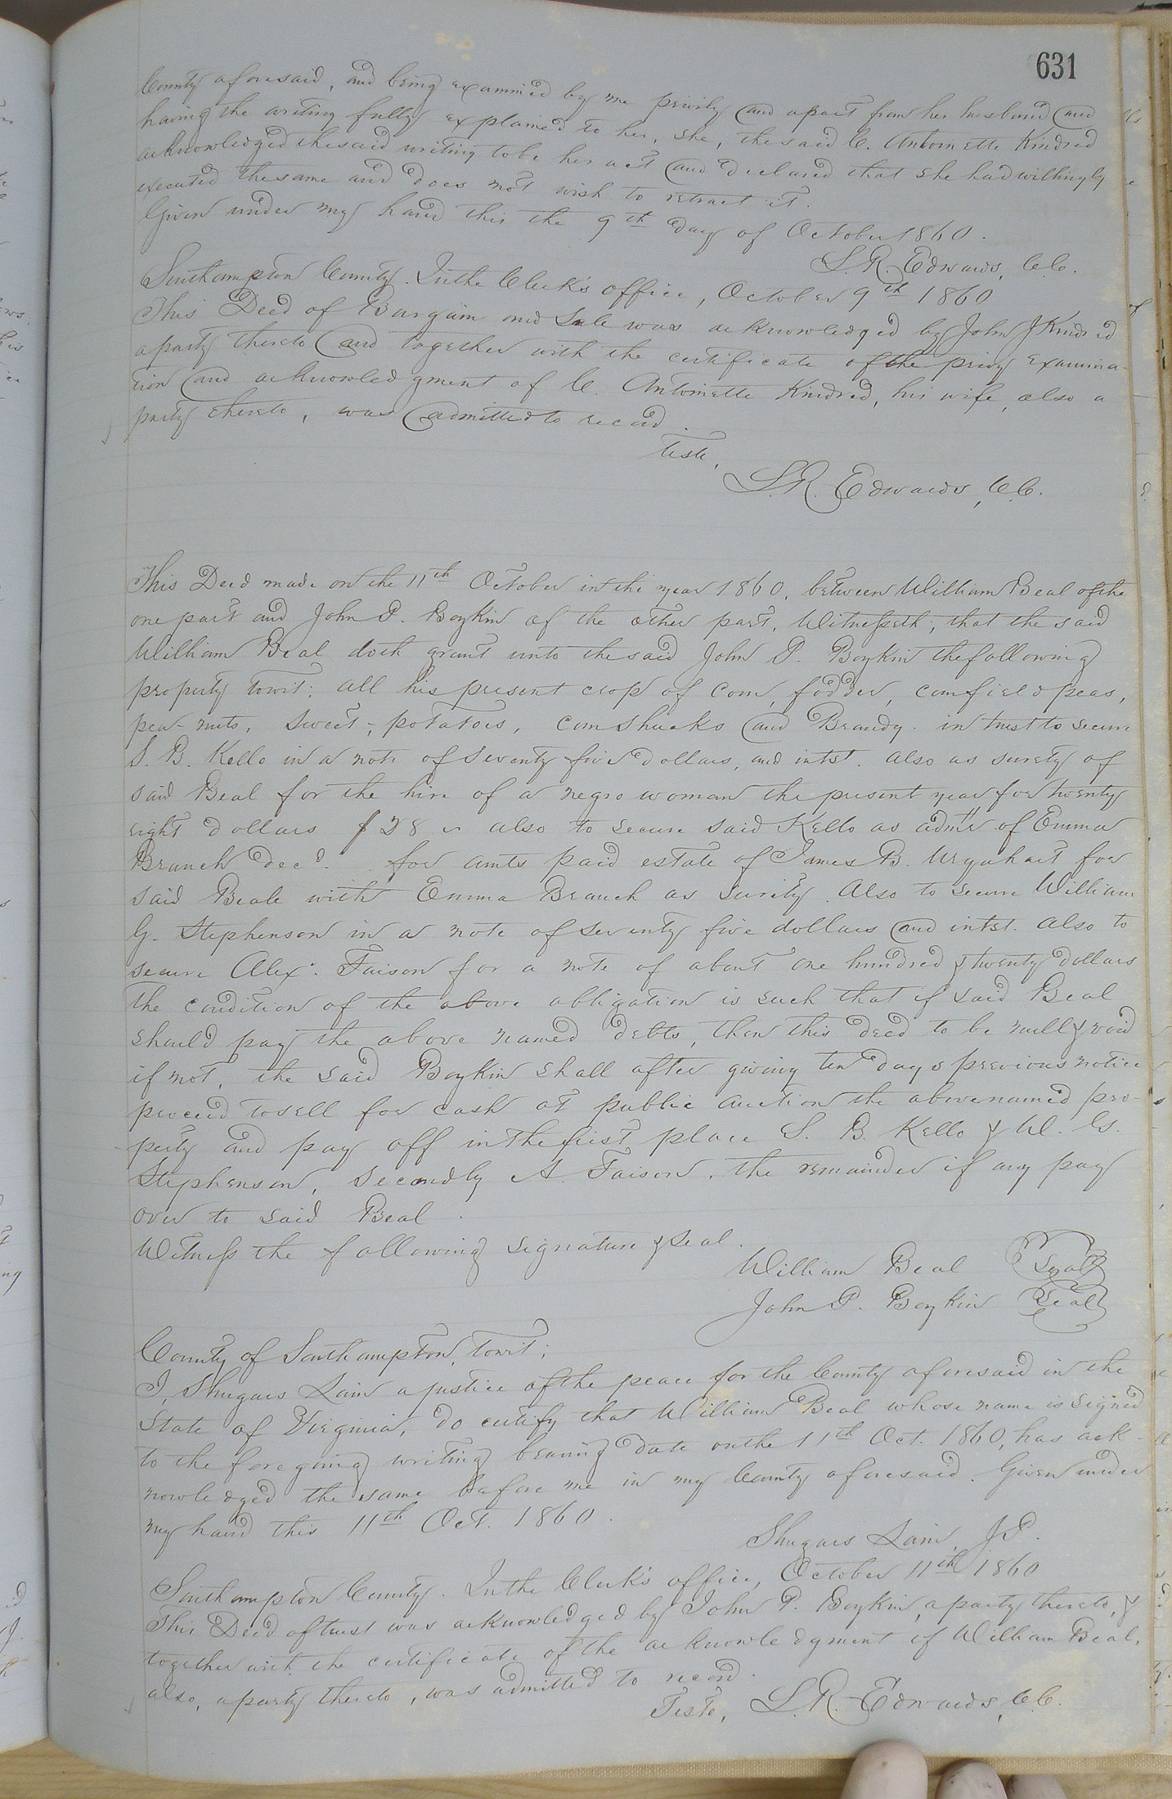 631
County aforesaid, and being examined by me privily and apart from her husband and
having the writing fully explained to her, she, the said C. Antoinette Kindred
acknowledged the said writing to be her act and declared that she had willingly
executed the same and does not wish to retract it.
Given under my hand this the 9th day of October 1860.
L. R. Edwards, C.C.
Southampton County. In the Clerk's office, October 9th 1860
This Deed of Bargain and Sale was acknowledged by John J Kindred
a party thereto and together with the certificate of the privy examina-
tion and acknowledgment of C. Antoinette Kindred, his wife, also a
party thereto, was admitted to record.
Teste,
L. R. Edwards, C.C.
This Deed made on the 11th October in the year 1860, between William Beal of the
one part and John P. Boykin of the other part, Witnesseth, that the said
William Beal doth grant unto the said John P. Boykin the following
property towit; all his present crop of corn, fodder, cornfield peas,
pea-nuts, sweet-potatoes, corn shucks and Brandy. in trust to secure
S. B. Kello in a note of seventy five dollars, and intst. also as surety of
said Beal for the hire of a negro woman the present year for twenty
eight dollars $28 also to secure said Kello as admr of Emma
Branch decd. for amts paid estate of James B. Urquhart for
said Beale with Emma Branch as surity. Also to secure William
G. Stephenson in a note of seventy five dollars and intst. also to
secure Alexr. Faison for a note of about one hundred & twenty dollars
The condition of the above obligation is such that if said Beal
should pay the above named debts, then this deed to be null & void
if not, the said Boykin shall after giving ten days previous notice
proceed to sell for cash at public auction the above named pro-
perty and pay off in the first place S. B. Kello & W. G.
Stephenson, secondly A. Faison. the remainder if any pay
over to said Beal.
Witness the following signature & seal.
William Beal Seal
John P. Boykin Seal
County of Southampton, towit;
I, Shugars Lain a justice of the peace for the County aforesaid in the
State of Virginia, do certify that William Beal whose name is signed
to the foregoing writing bearing date on the 11th Oct. 1860, has ack-
nowledged the same before me in my County aforesaid. Given under
my hand this 11th Oct. 1860.
Shugars Lain, J.P.
Southampton County. In the Clerk's office, October 11th 1860
This Deed of trust was acknowledged by John P. Boykin, a party thereto, &
together with the certificate of the acknowledgment of William Beal,
also, a party thereto, was admitted to record.
Teste, L. R. Edwards, C.C.